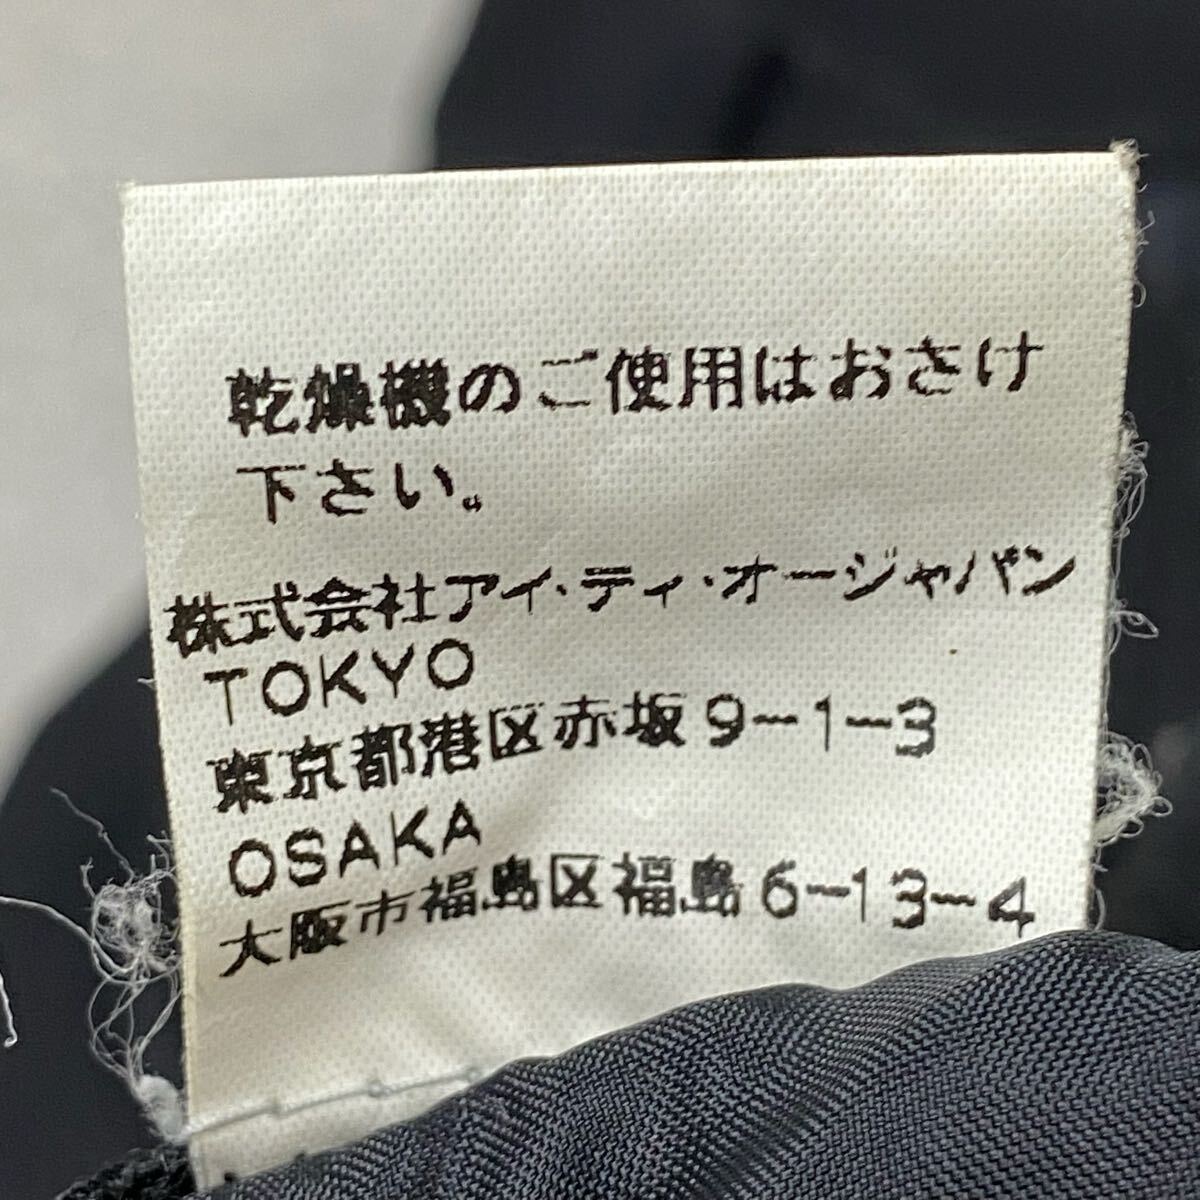 乾燥機のご使用はおさけ
下さい。
株式会社アイ・ティ・オージャパン
TOKYO
東京都港区赤坂9-1-3
OSAKA
大阪市福島区福島6-13-4